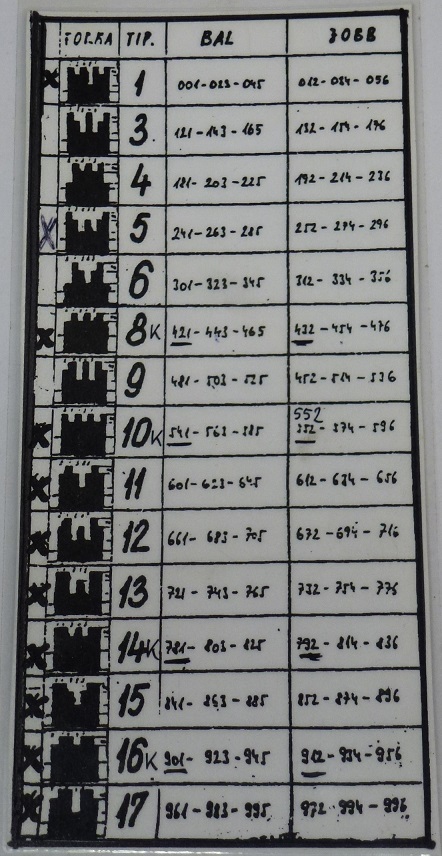 TORKA TIP. BAL JOBB
1 001-023-045 012-034-056
3 121-143-165 132-154-176
4 181-203-225 192-214-236
5 241-263-285 252-274-296
6 301-323-345 312-334-356
8K 421-443-465 432-454-476
9 481-503-525 452-514-536
552
10K 541-563-585 552-574-596
11 601-623-645 612-634-656
12 661-683-705 672-694-716
13 721-743-765 732-754-776
14K 781-803-825 792-814-836
15 841-863-885 852-874-896
16K 901-923-945 912-934-956
17 961-983-995 972-994-996